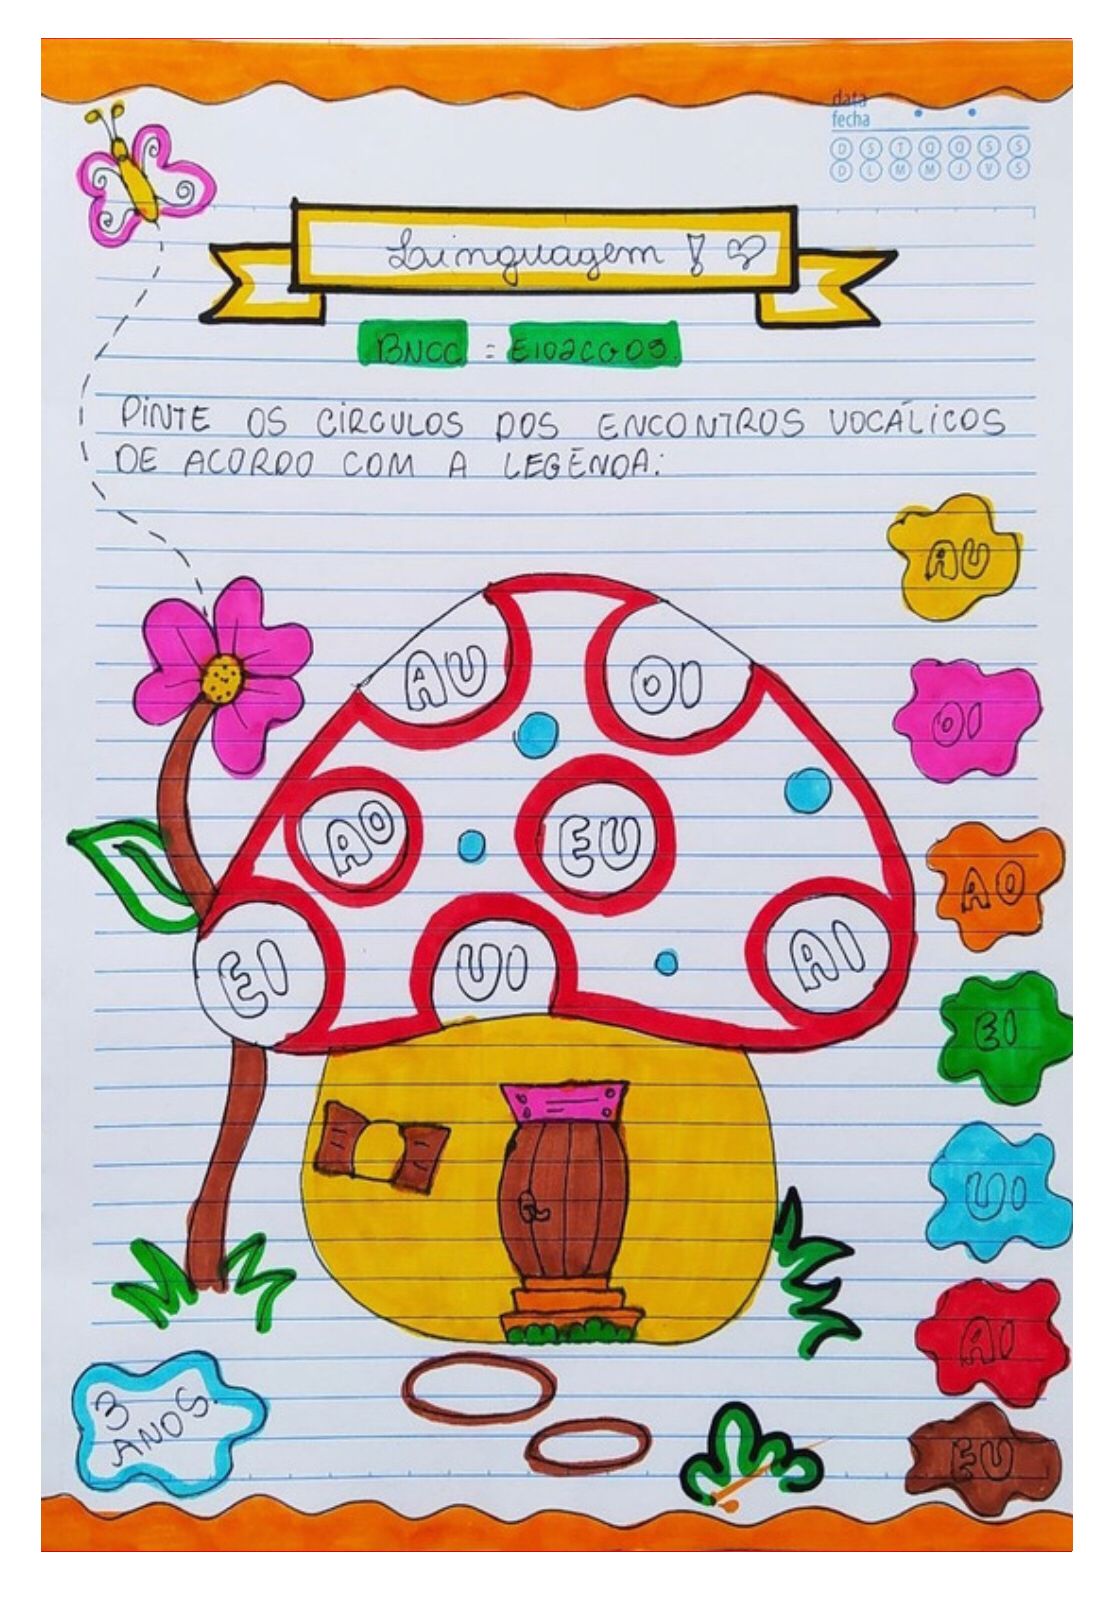 data
fecha
D S T Q Q S S
D L M M J V S
Linguagem !
BNCC = EI02CG09.
PINTE OS CÍRCULOS DOS ENCONTROS VOCÁLICOS
DE ACORDO COM A LEGENDA:
AU
OI
AO
EI
UI
AI
EU
AU
OI
AO
EU
EI
UI
AI
3
ANOS.